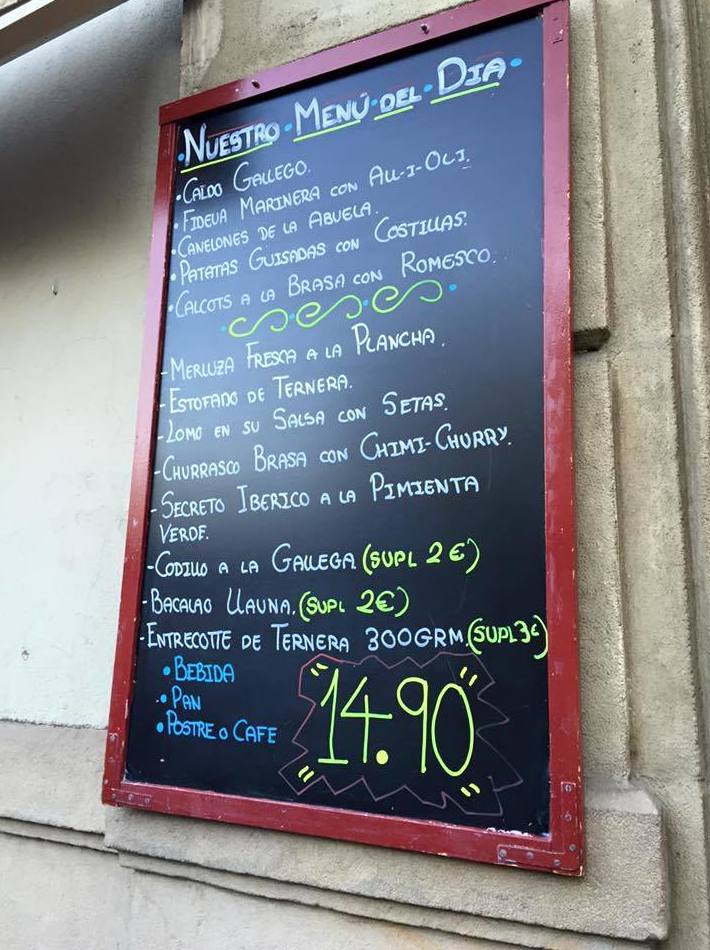 •Nuestro•Menú•del•Dia•
•Caldo Gallego.
•Fideua Marinera con All-i-Oli.
•Canelones de la Abuela.
•Patatas Guisadas con Costillas.
•Calcots a la Brasa con Romesco.
-Merluza Fresca a la Plancha.
-Estofado de Ternera.
-Lomo en su Salsa con Setas.
-Churrasco Brasa con Chimi-Churry.
-Secreto Iberico a la Pimienta
Verde.
-Codillo a la Gallega (supl 2€)
-Bacalao Llauna. (supl 2€)
-Entrecotte de Ternera 300grm. (supl 3€)
•Bebida
•Pan
•Postre o Cafe
14.90